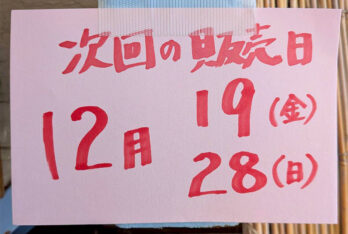 次回の販売日
12月 19(金)
28(日)